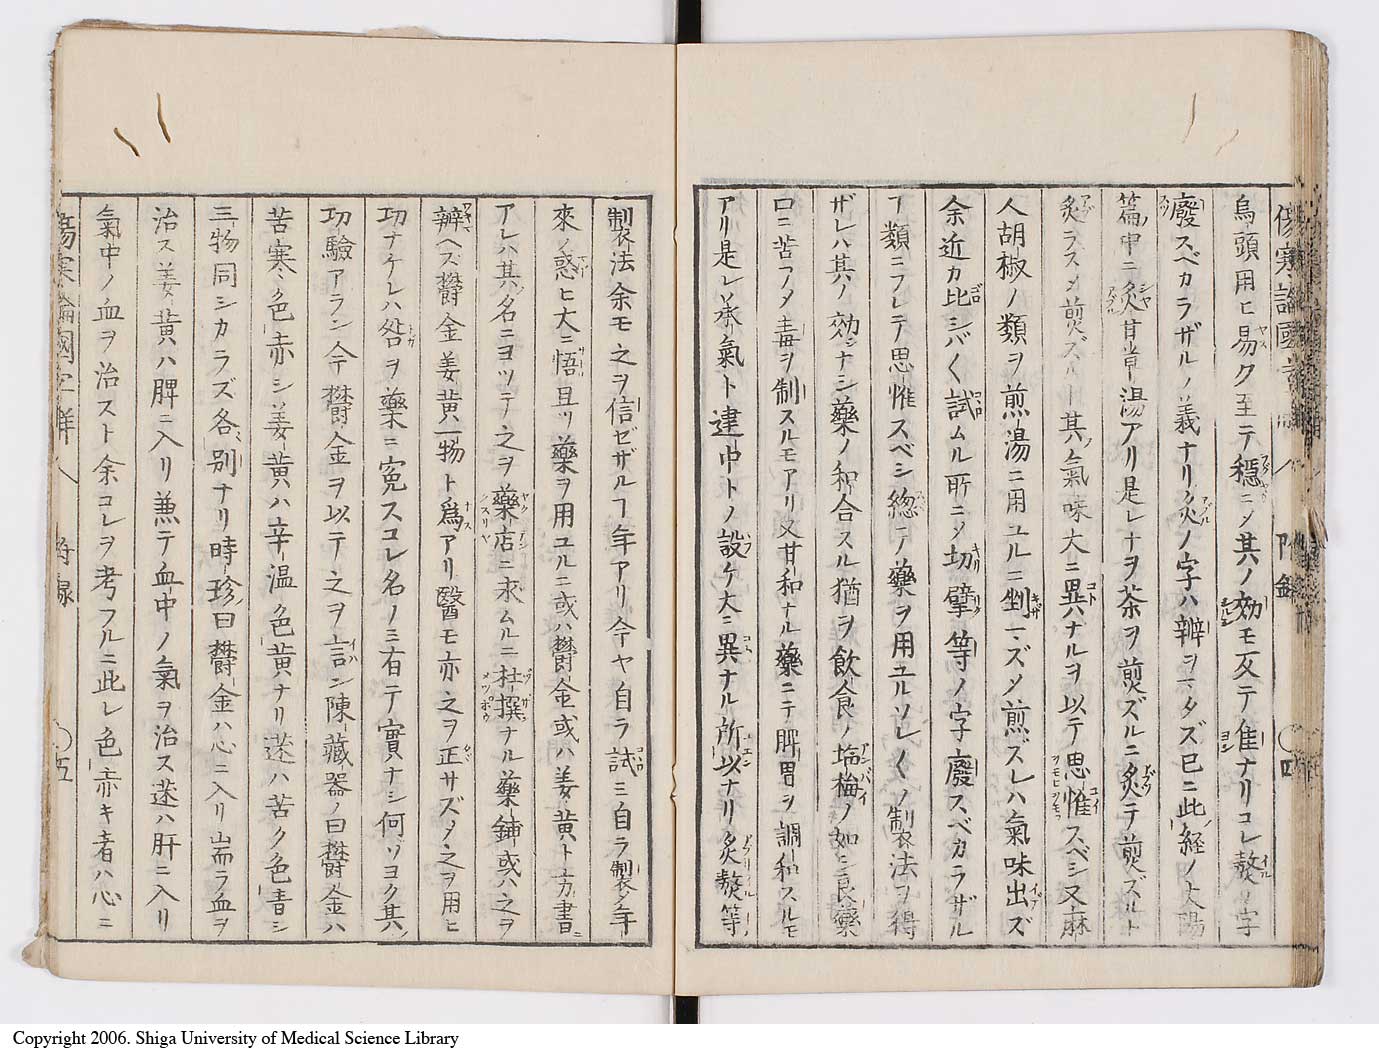 傷寒論國字解 附錄 〇四
烏頭用ヒ易ク至テ穩ニ〆其ノ効モ亙テ隹ナリコレ熬ノ字
廢スベカラザルノ義ナリ炙ノ字ハ辨ヲマタズ巳ニ此經ノ太陽
篇中ニ炙甘草湯アリ是レナヲ茶ヲ煎ズルニ炙テ煎ズルト
炙ラス〆煎ズルト其ノ氣味大ニ異ナルヲ以テ思惟スベシ又麻
人胡椒ノ類ヲ煎湯ニ用ユルニ剉マズ〆煎ズレハ氣味出ズ
余近カ比シバ〱試ムル所ニ〆切擘等ノ字廢スベカラザル
ヿ類ニフレテ思惟スベシ總テ藥ヲ用ユルソレ〱ノ製法ヲ得
ザレハ其ノ効ナシ藥ノ和合スル猶ヲ飲食ノ塩梅ノ如シ良藥
口ニ苦フノタ毒ヲ制スルモアリ又甘和ナル藥ニテ脾胃ヲ調和スルモ
アリ是レ承氣ト建中トノ設ケ大ニ異ナル所以ナリ炙熬等
製法余モ之ヲ信ゼザルヿ年アリ今ヤ自ラ試ミ自ラ製〆年
來ノ惑ヒ大ニ悟且リ藥ヲ用ユルニ或ハ欝金或ハ姜黄ト方書ニ
アレハ其ノ名ニヨツテ之ヲ藥店ニ求ムルニ杜撰ナル藥鋪或ハ之ヲ
辨ヘズ欝金姜黄一物ト爲アリ醫モ亦之ヲ正サズ〆之ヲ用ヒ
功ナケレハ咎ヲ藥ニ寃スコレ名ノミ有テ實ナシ何ゾヨク其ノ
功驗アラン今欝金ヲ以テ之ヲ言ン陳藏器ノ曰欝金ハ
苦寒色赤シ姜黄ハ辛溫色黄ナリ蒁ハ苦ク色青シ
三物同シカラズ各別ナリ時珍曰欝金ハ心ニ入リ耑ラ血ヲ
治ス姜黄ハ脾ニ入リ兼テ血中ノ氣ヲ治ス蒁ハ肝ニ入リ
氣中ノ血ヲ治スト余コレヲ考フルニ此レ色赤キ者ハ心ニ
傷寒論國字解 附錄 〇五
Copyright 2006. Shiga University of Medical Science Library